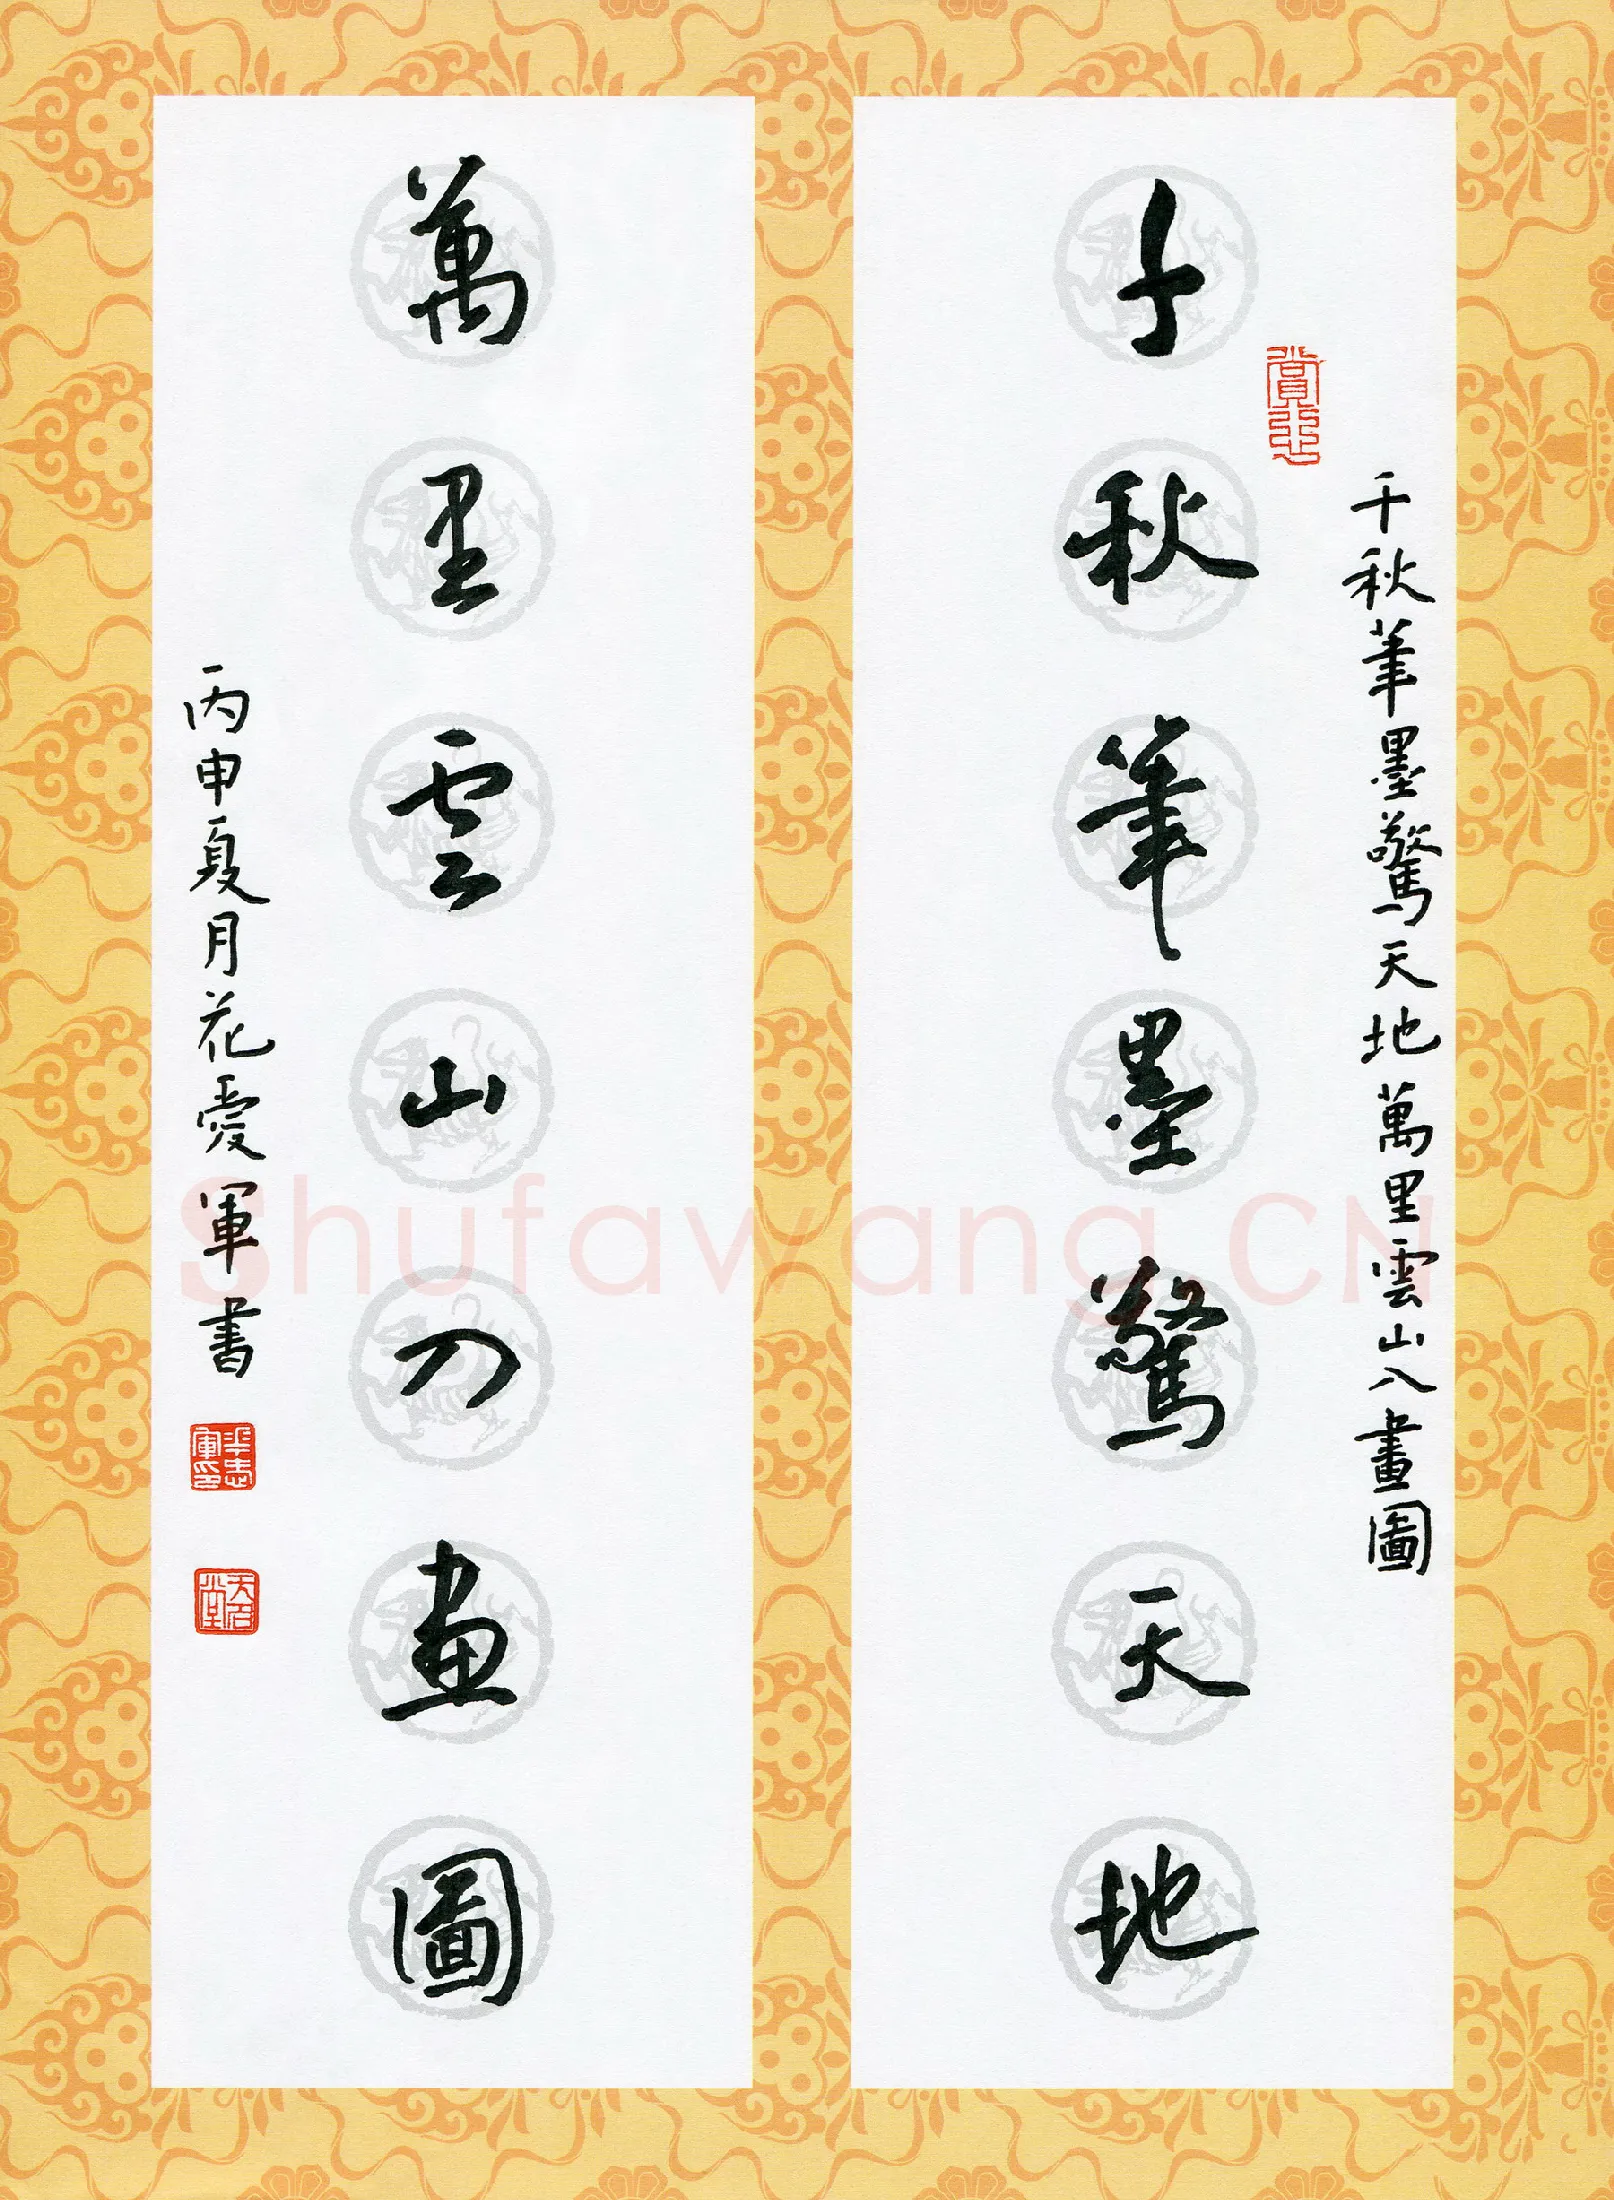 千秋筆墨驚天地萬里雲山入畫圖
千秋筆墨驚天地
萬里雲山入画圖
丙申夏月花愛軍書
Shufawang.CN